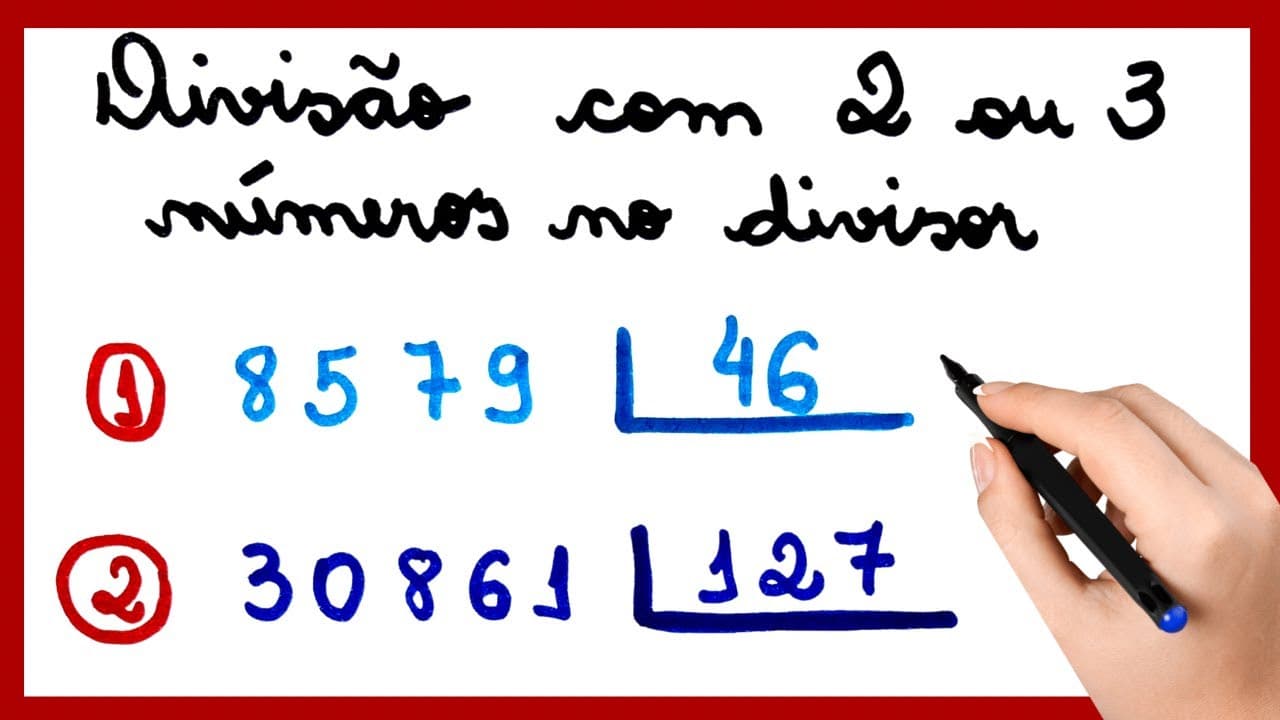 Divisão com 2 ou 3
números no divisor
1 8579 46
2 30861 127